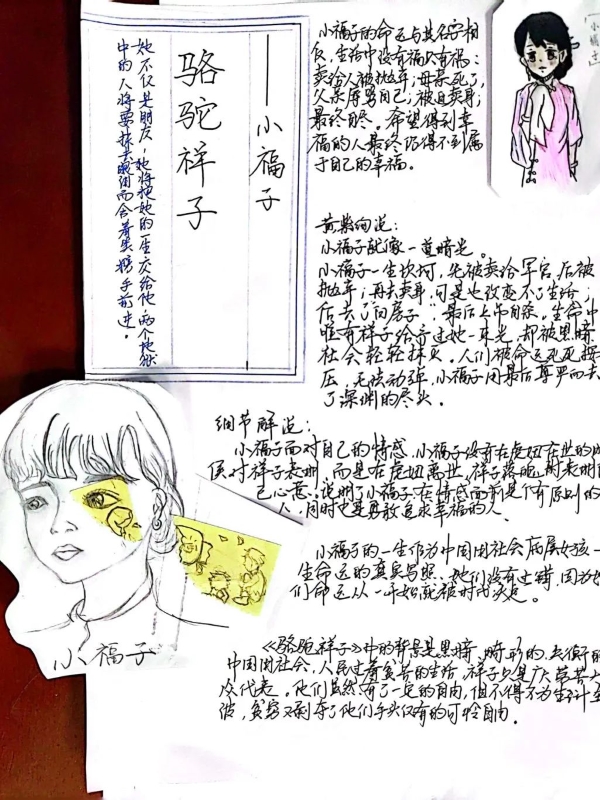 骆驼祥子
——小福子
她不仅是朋友，她将把她的一生交给他，两个地狱
中的人将要抹去眼泪而含着笑携手前进。
小福子的命运与其名字相
反，生活中没有福只有祸：
卖给人被抛弃；母亲死了，
父亲辱骂自己；被迫卖身；
最终自尽。希望得到幸
福的人最终仍得不到属
于自己的幸福。
小福子就像一道暗光。
小福子一生坎坷，先被卖给军官，后被
抛弃；再去卖身，可是也改变不了生活；
后去了白房子，最后上吊自杀。生命中
唯有祥子给予过她一束光，却被黑暗
社会轻轻抹灭。人们被命运死死摁
压，无法动弹，小福子用最后尊严而去
了深渊的尽头。
细节解说：
小福子面对自己的情感，小福子没有在虎妞在世的时
候对祥子表明，而是在虎妞离世，祥子落魄时表明自
己心意。说明了小福子在情感面前是个有原则的
人，同时也是勇敢追求幸福的人。
小福子的一生作为中国旧社会底层
生命运的真实写照。她们没有过错，因为她
们命运从一开始就被时代决定。
《骆驼祥子》中的背景是黑暗、畸形的、失衡的
中国旧社会，人民过着贫苦的生活，祥子只是广大劳苦
代表。他们虽然有了一定的自由，但不得不为生计奔
波，贫穷又剥夺了他们手头仅有的可怜自由。
小福子